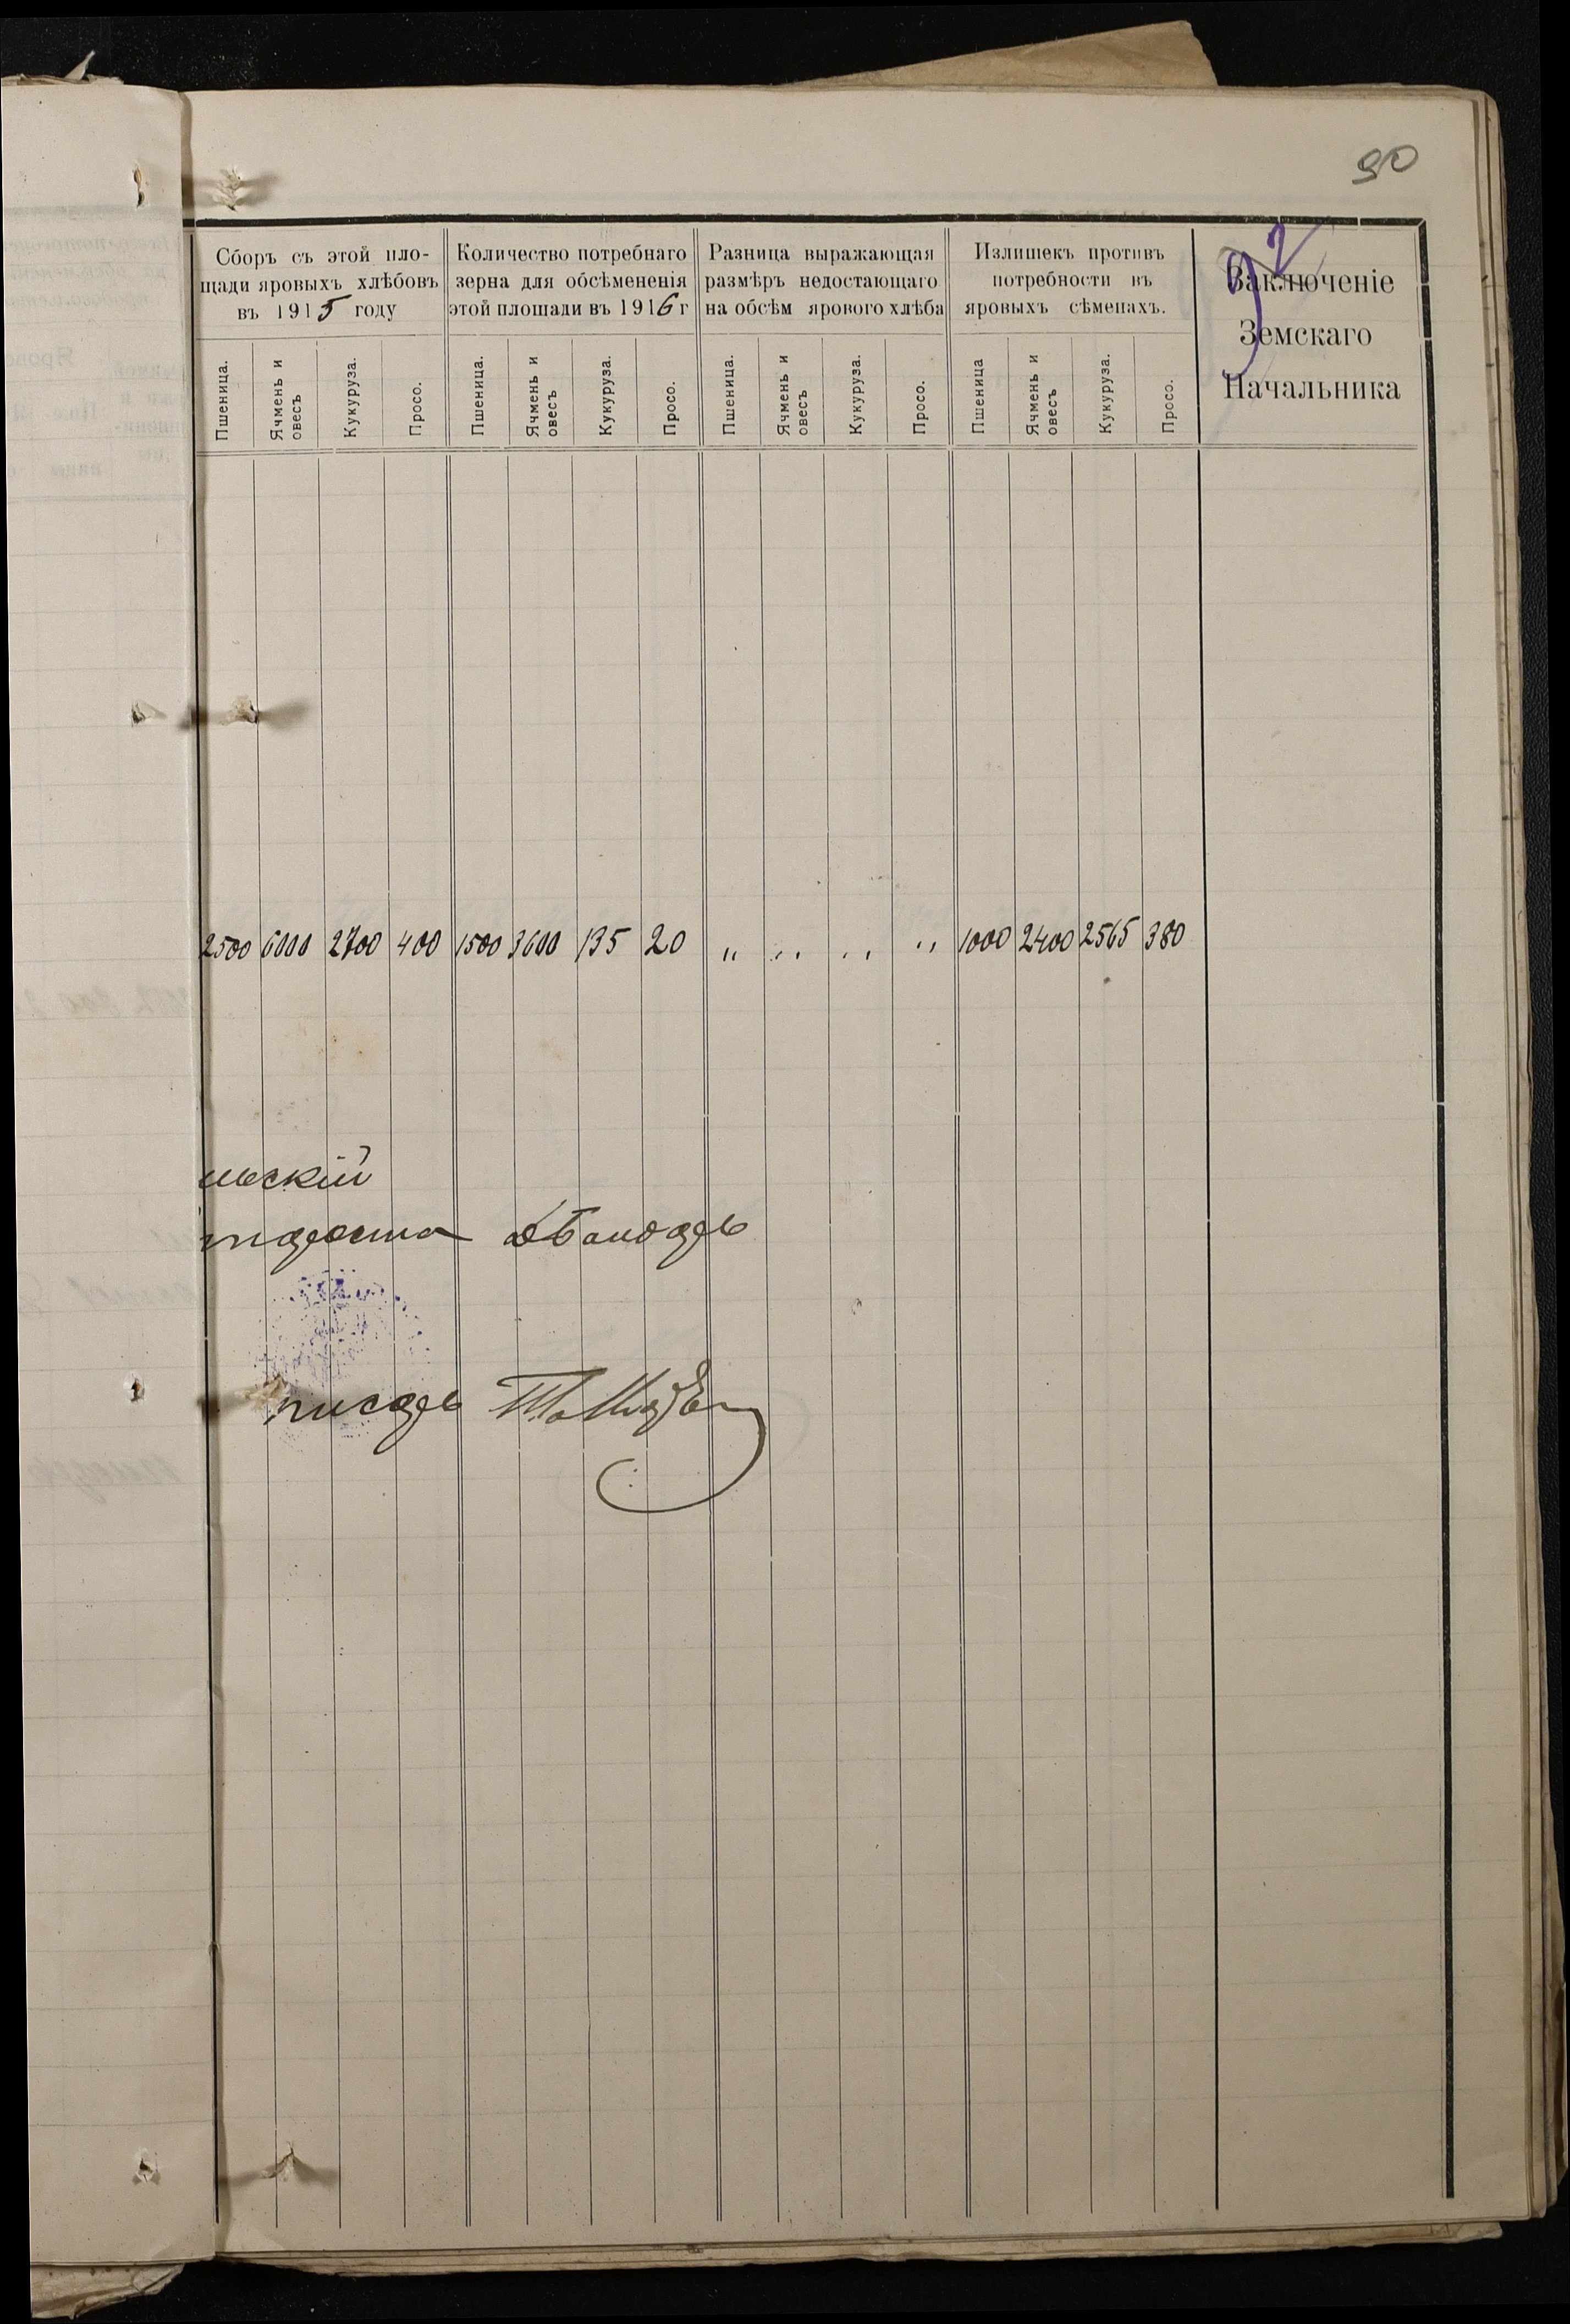 90
92
Сборъ съ этой пло-
щади яровыхъ хлѣбовъ
въ 1915 году
Количество потребнаго
зерна для обсѣмененія
этой площади въ 1916 г
Разница выражающая
размѣръ недостающаго
на обсѣм ярового хлѣба
Излишекъ противъ
потребности въ
яровыхъ сѣменахъ.
Заключеніе
Земскаго
Начальника
Пшеница. Ячмень и овесъ Кукуруза. Просо. Пшеница. Ячмень и овесъ Кукуруза. Просо. Пшеница. Ячмень и овесъ Кукуруза. Просо. Пшеница Ячмень и овесъ Кукуруза. Просо.
2500 6000 2700 400 1500 3600 135 20 " " " " 1000 2400 2565 380
льскій
тароста
писарь